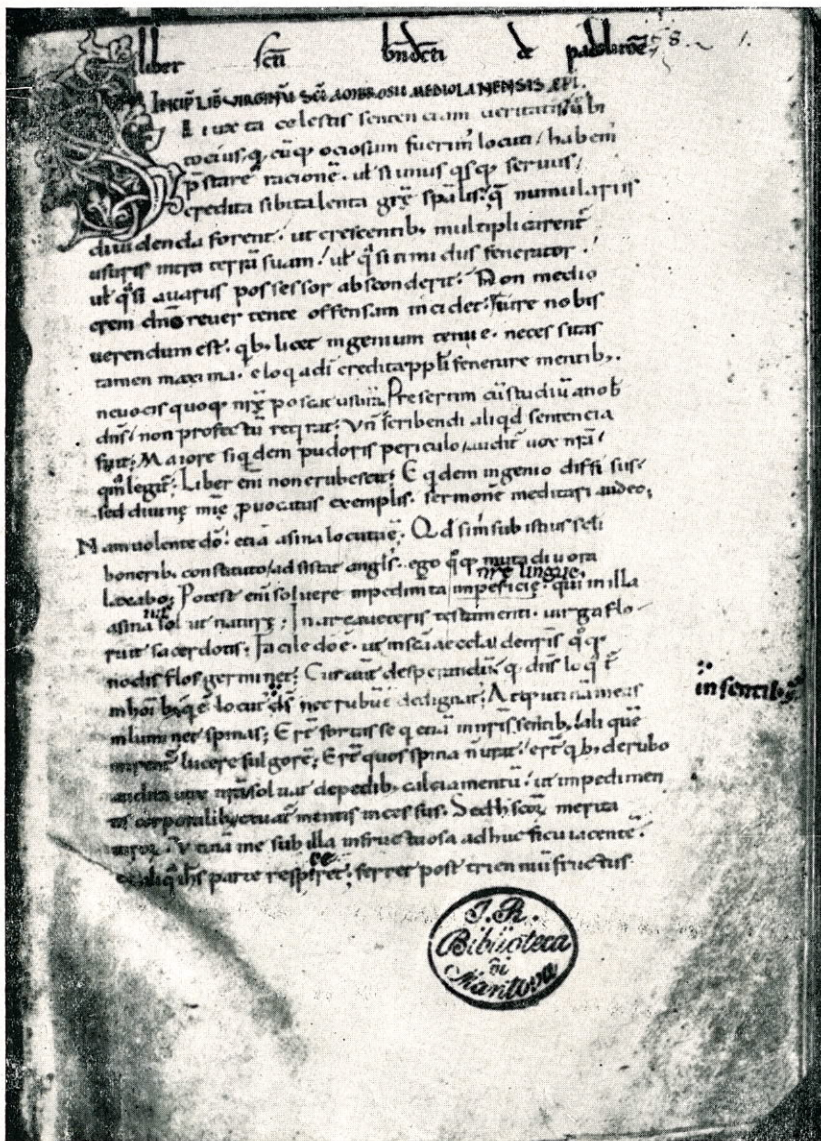 liber scti bndcti de padolirone 58. 1.
INCIP LIB VIRGINVM SCI AMBROSII MEDIOLANENSIS EPI.
Si iuxta celestis sentenciam veritatis ubi
tocius, q cuq ociosum fuerim locuti / habem
pstare racione. ul si unus qsq servus /
credita sibi talenta gre spalis, q numulariis
dividenda forent. ut crescentib, multiplicarent
usuris intra terra suam / ul qsi timidus fenerator.
ul qsi avarus possessor absconderit. Non medio
crem dno revertente offensam incidet. Iure nobis
verendum est. qb, licet ingenium tenue. necessitas
tamen maxima. eloqa di credita ppli fenerare mentib,.
ne vocis quoq nre poscat usura. Presertim cu studiu a nob
dns / non profectu reqrat. Vn scribendi aliqd sentencia
fuit; Maiore siqdem pudoris periculo / audit vox nra /
qm legit; Liber eni non erubescit; E qdem ingenio diffisus /
sed divine mie pvocatus exemplis. sermone meditari audeo;
Nam volente do. etia asina locuta e. Qd si m sub istius seli
honerib, constituto / adsistat angls. ego qq muta diu ora
laxabo; Potest eni solvere impedimta impericie. qui in illa
nre lingue,
asina solvit nature; In arca veteris testamenti. virga flo
ruit sacerdotis; Facile do e. ut in sca aeccla de nris qq
nodis flos germinet; Cur aut desperandu. q dns loqt
in hoib, q e locut ds nec rubu e dedignat; Atq utina meas
in sentib,
inluminet spinas; Ert fortasse q etia in nris sentib, / alique
mirent lucere fulgore; Ert quos spina n urat / ert qb, de rubo
audita vox nra / solvat de pedib, calciamentu / ut impedimen
tis corporalib, exuat mentis incessus. Sed h scor merita
viror. Vtina me sub illa infructuosa adhuc ficu iacente.
ex aliq ihs parte respiceret; ferret post trienniu fructus
I. R.
Biblioteca
di
Mantova